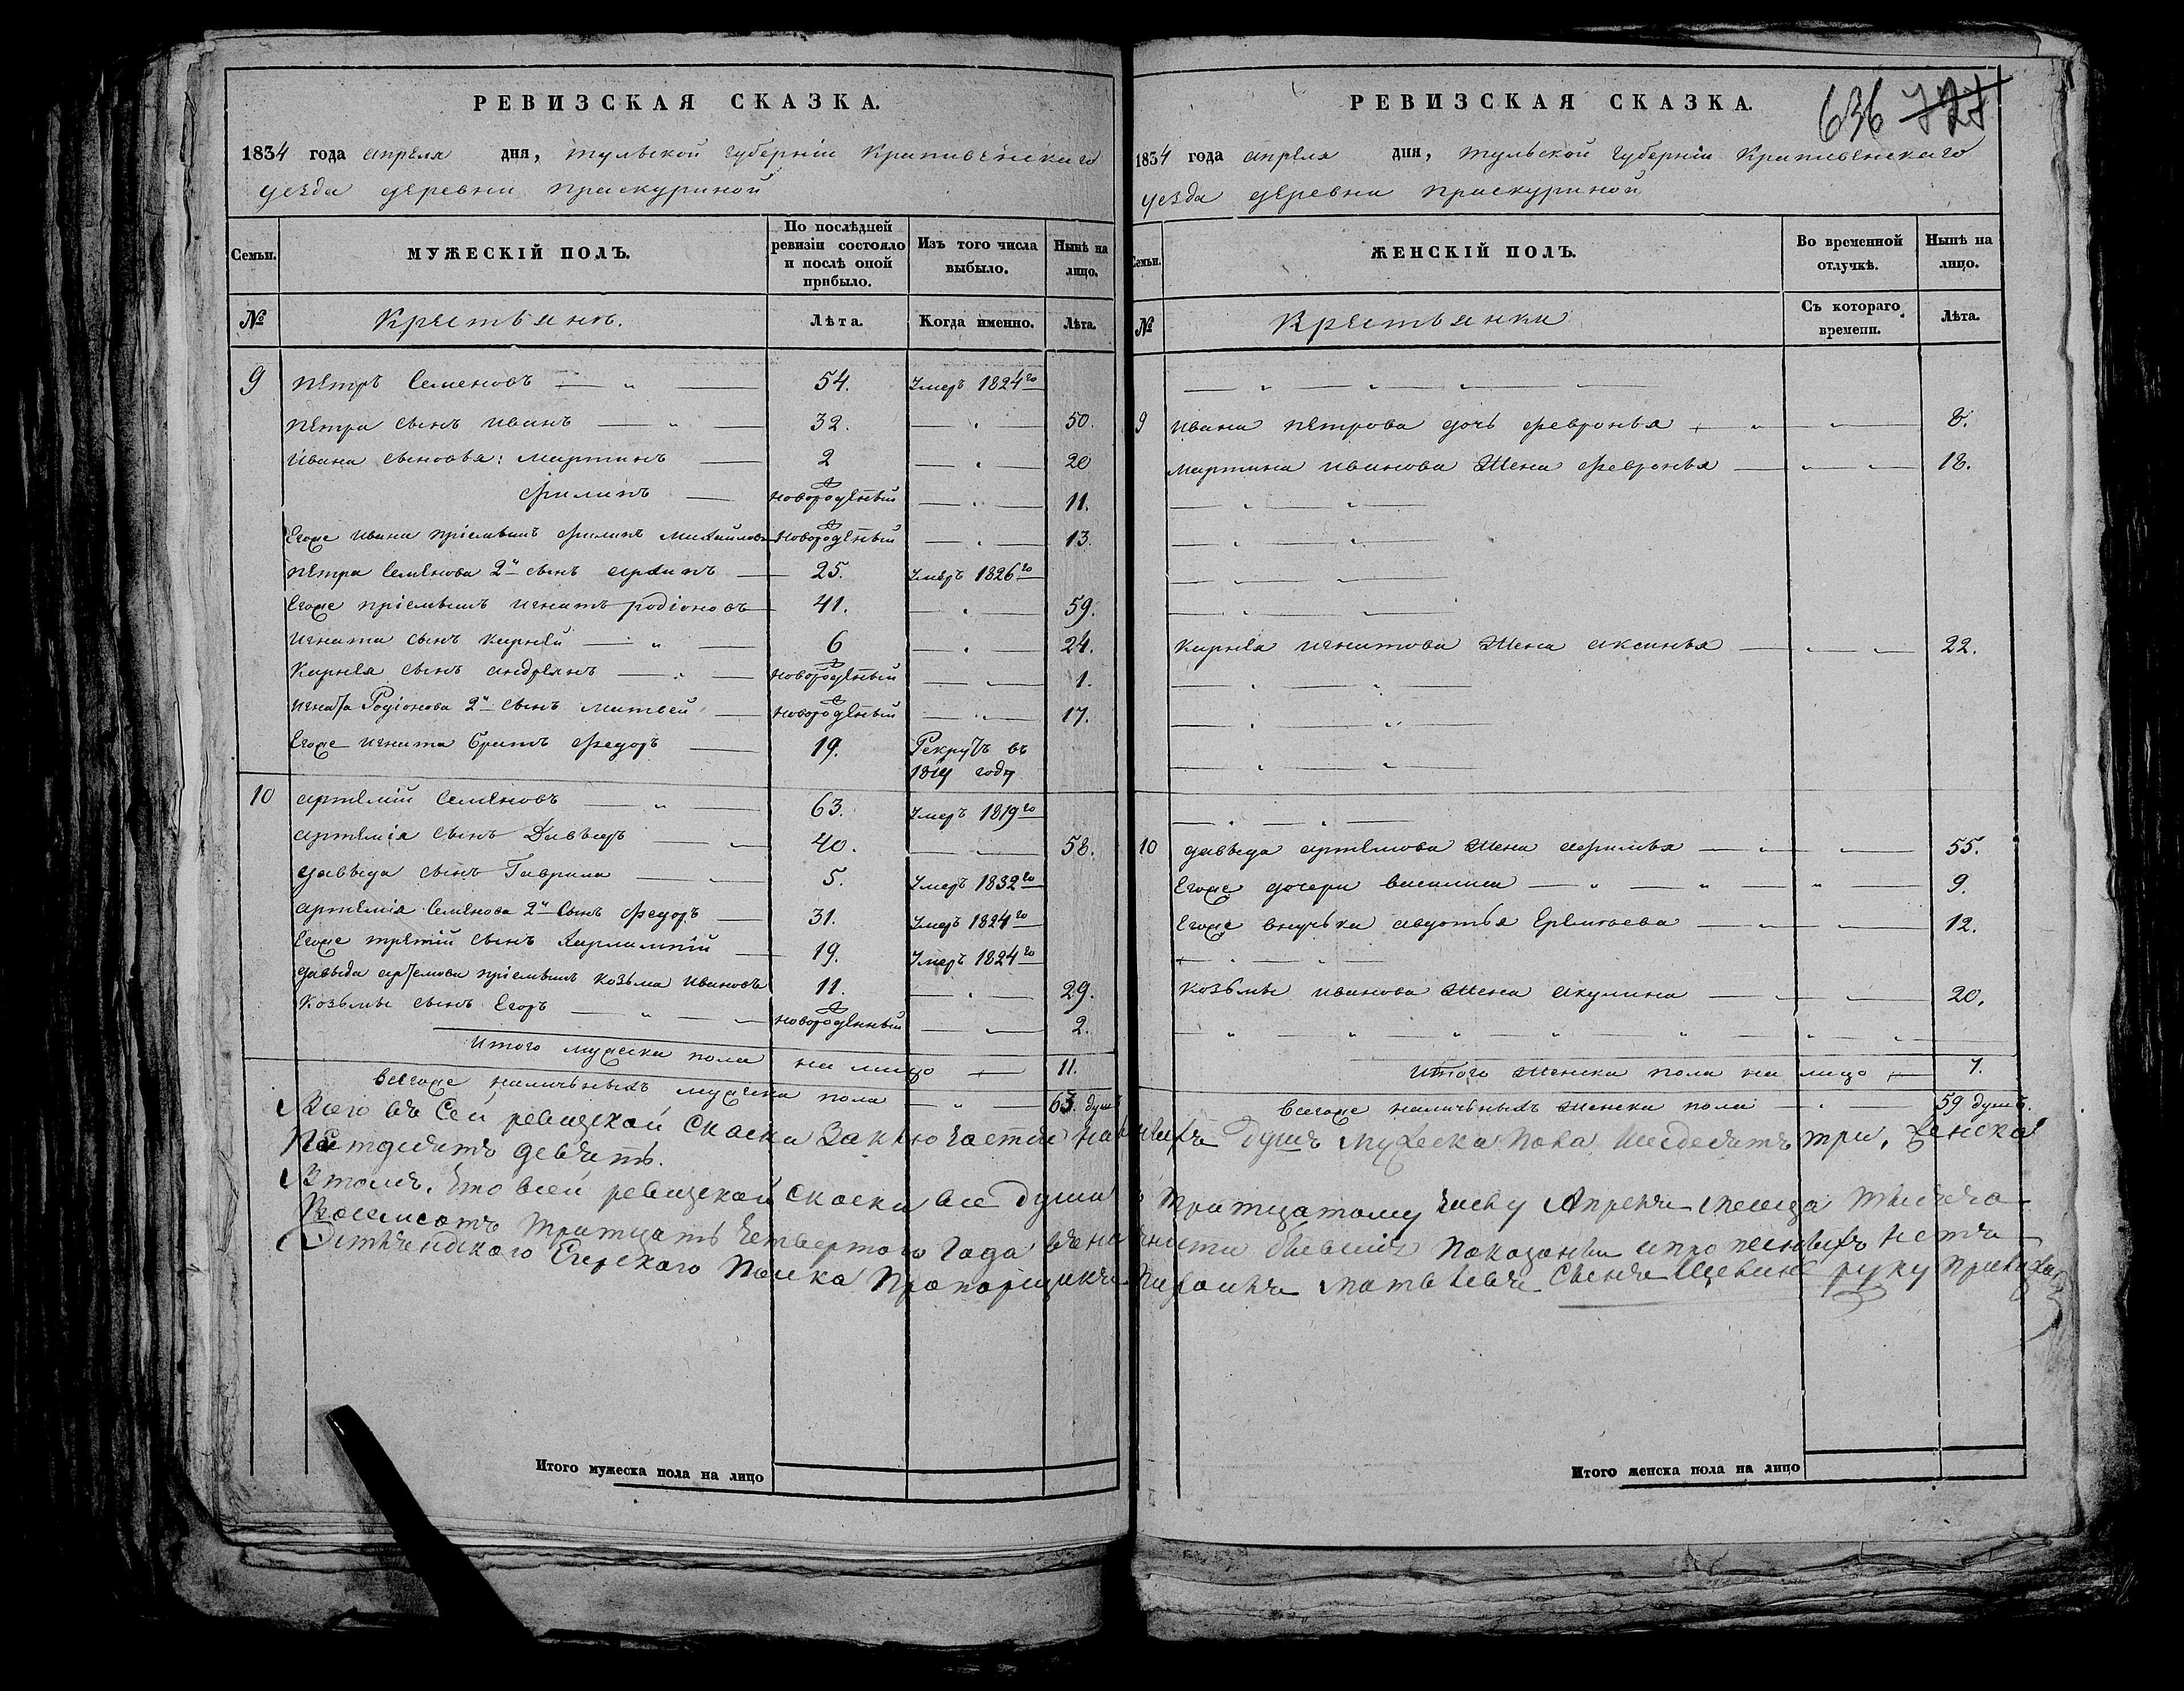 РЕВИЗСКАЯ СКАЗКА.
1834 года апреля дня, тульской губернiи крапивенскаго
уезда деревни праскуриной
Семьи.
МУЖЕСКІЙ ПОЛЪ.
По послѣдней ревизіи состояло и послѣ оной прибыло.
Изъ того числа выбыло.
Нынѣ на лицо.
№
Крестьянъ.
Лѣта.
Когда именно.
Лѣта.
9 петръ Семеновъ 54. Умеръ 1824го
петра сынъ иванъ 32. 50.
ивана сыновья: мартинъ 2 20
филипъ новорожденый 11.
Егоже ивана прiемышъ филипъ михайловъ новорожденый 13.
петра Семенова 2й сынъ архипъ 25. Умеръ 1826го
Егоже прiемышъ игнатъ родiоновъ 41. 59.
игната сынъ карней 6 24.
карнея сынъ андреянъ новорожденый 1.
игната Родiонова 2й сынъ матвей новорожденый 17.
Егоже игната братъ федоръ 19. Рекрутъ въ
1819 году
10 артемiй Семеновъ 63. Умеръ 1819го
артемiя сынъ Давыдъ 40. 58.
давыда сынъ Гаврила 5. Умеръ 1832го
артемiя Семенова 2й сынъ федоръ 31. Умеръ 1824го
Егоже третiй сынъ Харлампiй 19. Умеръ 1824го
давыда артемова прiемышъ козьма ивановъ 11. 29.
козьмы сынъ Егоръ новорожденный 2.
Итого мужеска пола на лицо 11.
всегоже наличныхъ мужеска пола 63. душ
Итого мужеска пола на лицо
РЕВИЗСКАЯ СКАЗКА.
636 727
1834 года апреля дня, тульской губернiи Крапивенскаго
уезда деревни праскуриной
Семьи.
ЖЕНСКІЙ ПОЛЪ.
Во временной отлучкѣ.
Нынѣ на лицо.
№
Крестьянки
Съ котораго времени.
Лѣта.
9 ивана петрова дочь февронья 8.
мартина иванова жена февронья 18.
карнея игнатова жена аксинья 22.
10 давыда артемова жена афимья 55.
Егоже дочери василиса 9.
Егоже внучька авдотья Еремеева 12.
козьмы иванова жена акулина 20.
Итого женска пола на лицо 7.
всегоже наличныхъ женска пола 59 душъ.
Всего въ Сей ревизской Скаски Заключается наличныхъ душъ мужеска пола шесдесятъ три, женска
Пятдесятъ девять.
Втомъ, что всей ревизской Скаски все души к тритцатому числу Апреля месеца тысеча
Восемсотъ тритцать четвертого года вналичности бывшие показаны и прописныхъ нетъ
Егерского Полка Прапорщикъ матвеевъ сынъ руку приложи
Итого женска пола на лицо